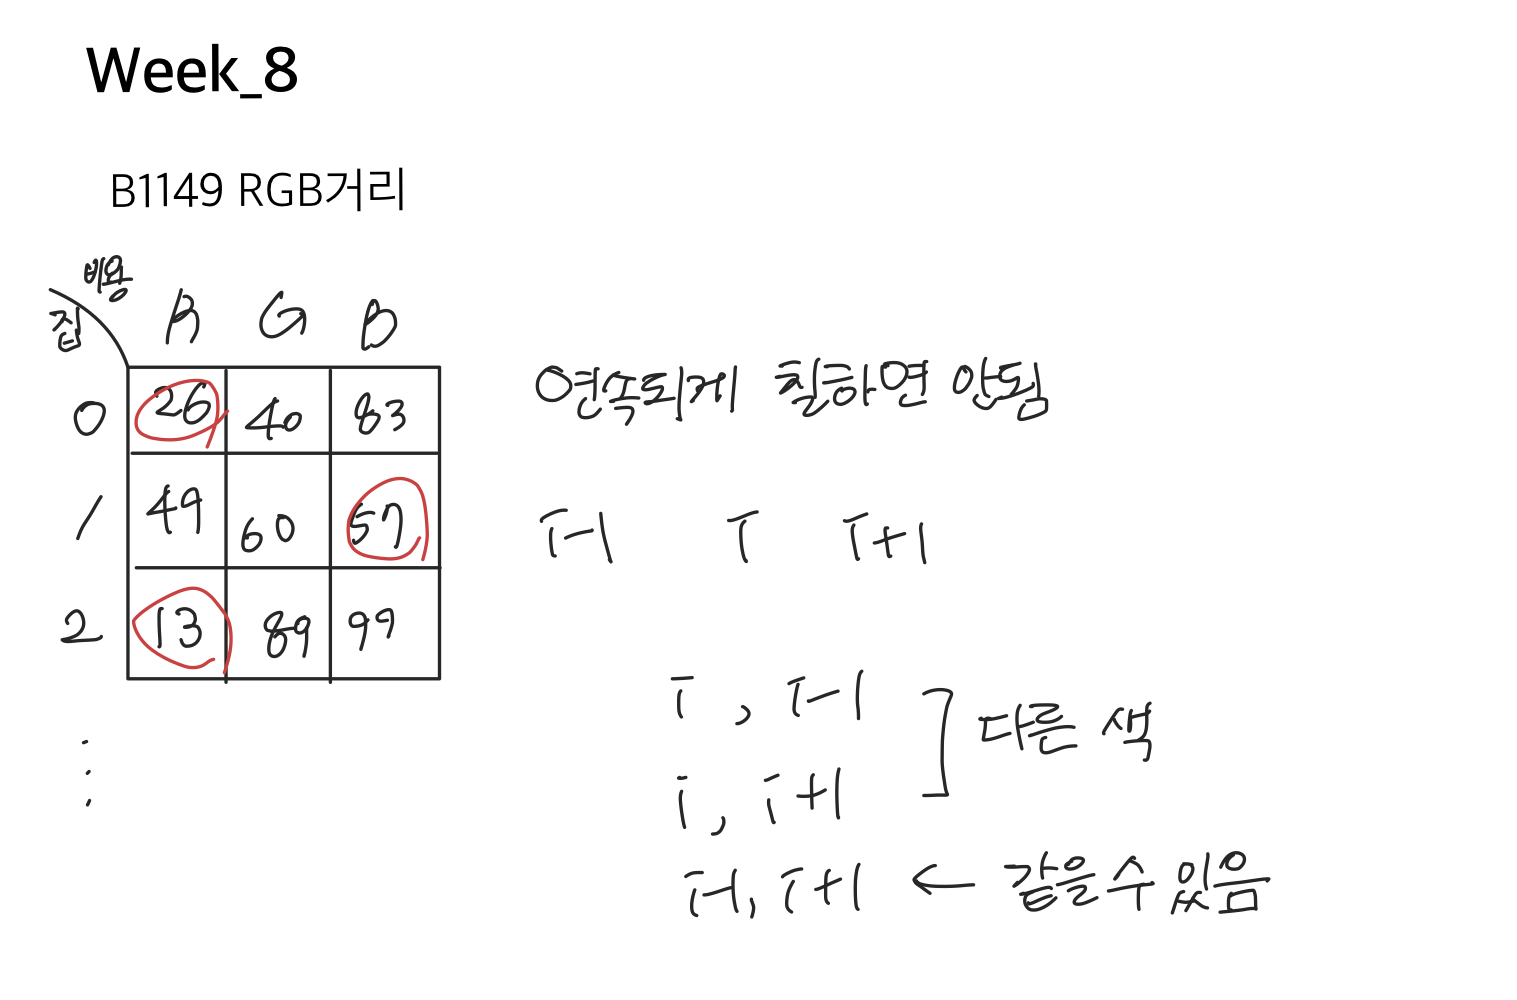 Week_8
B1149 RGB거리
비용
집
R G B
0 26 40 83
1 49 60 57
2 13 89 99
⋮
연속되게 칠하면 안됨
i-1 i i+1
i , i-1
i , i+1
다른 색
i-1, i+1 ← 같을 수 있음